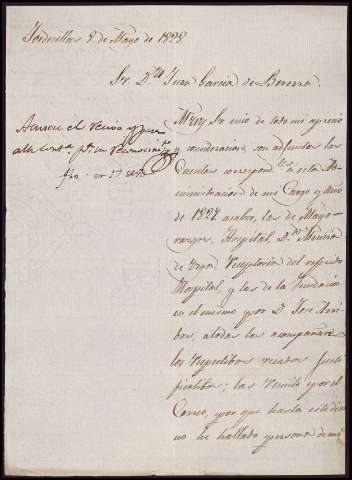 Tordesillas 8 de Mayo de 1828.
Sr. Dn Juan Garcia de
Acusese el recivo y
a la
fho. en 17
Muy Sr mio de todo mi aprecio
y consideracion, son adjuntas las
Cuentas correspond.tes a esta Ad-
ministracion de mi Cargo y Año
de 1827. a saber, las de Mayo-
razgos, Hospital, D.ª Mencia
de Vega del referido
Hospital, y las de la Fundacion
en el mismo por D. Jose
a todas las acompañan
los respectibos recados justi-
ficatibos; las remito por el
Correo, por que hasta este dia
no he hallado persona de mi